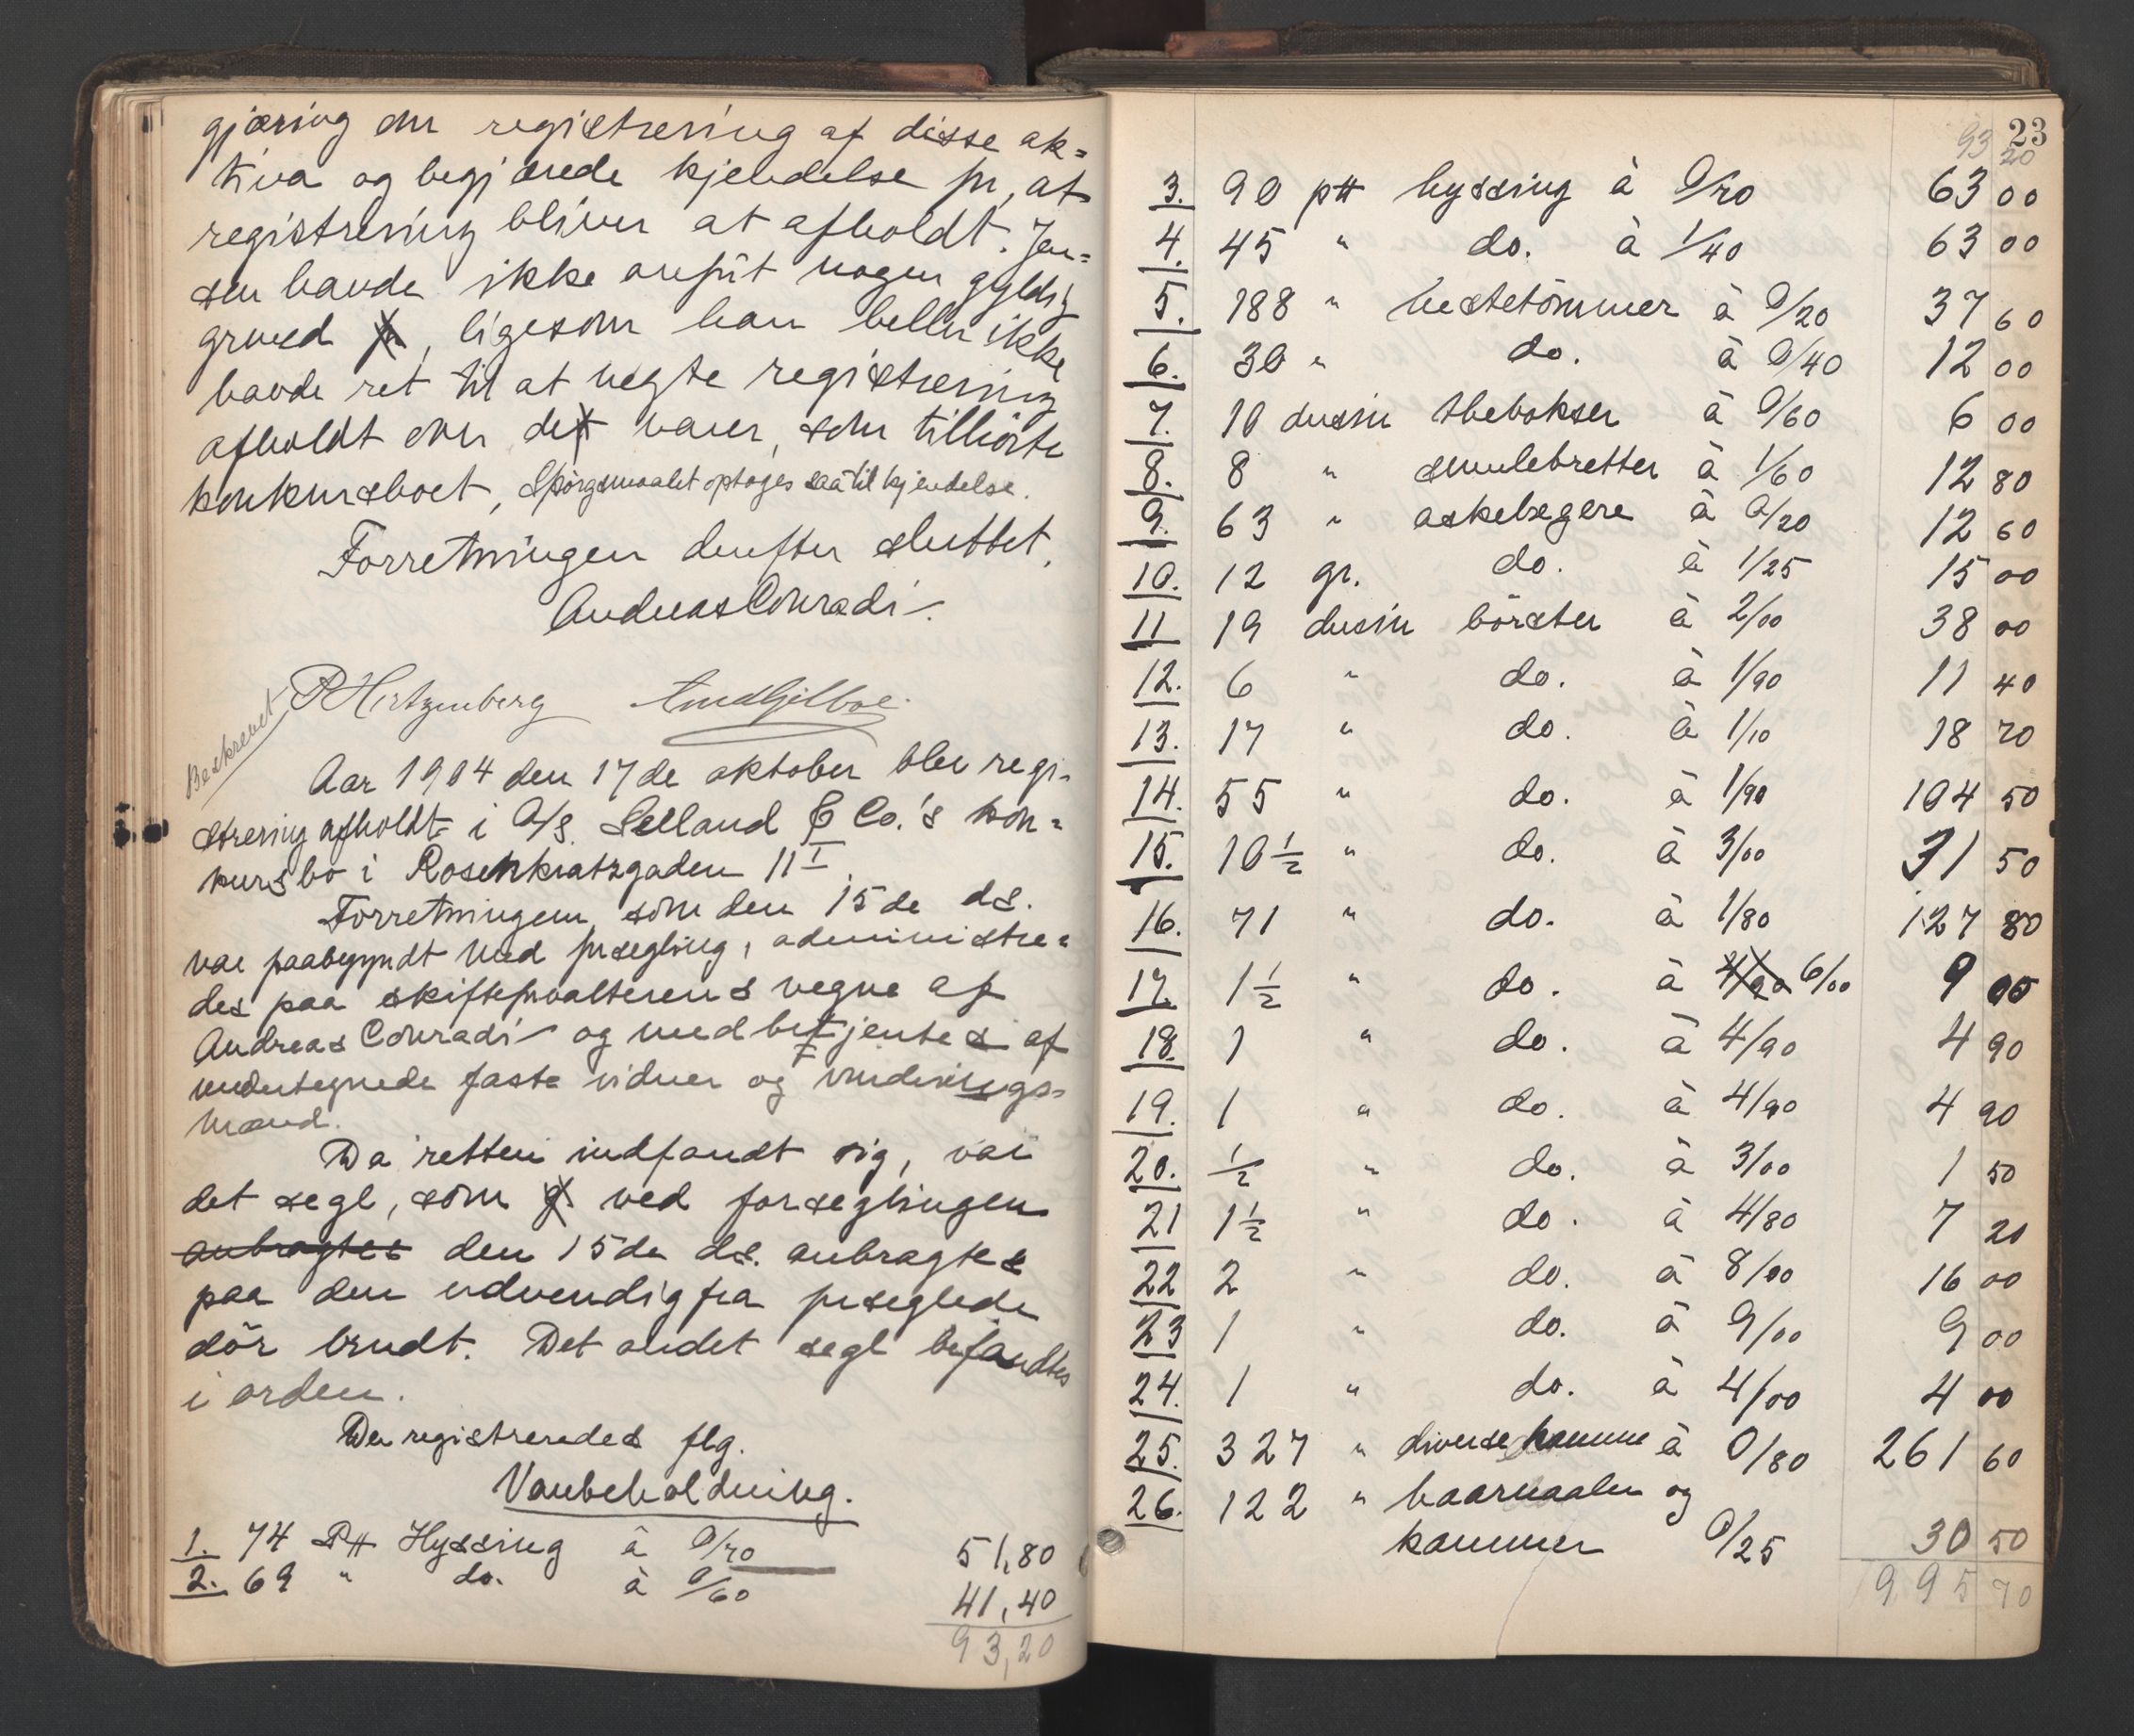 gjøring om registrering af disse ak=
tiva og begjærede kjendelse for, at
registrering bliver at afholdt. Jen=
sen havde ikke anført nogen gyldig
grund for, ligesom han heller ikke
havde ret til at negte registrering
afholdt over det varer, som tilhørte
konkursboet, Spørgsmaalet optoges saa til kjendelse.
Forretningen derefter sluttet.
Andreas Conradi
P Hertzenberg
Beskrevet
Aar 1904 den 17de oktober blev regi-
strering afholdt i A/S. Selland & Co.'s kon=
kursbo i Rosenkratzgaden 11 I.
Forretningen, som den 15de ds.
var paabegyndt med forsegling, administre=
des paa skifteforvalterens vegne af
Andreas Conradi og medbetjentes af
undertegnede faste vidner og vurderings=
mænd.
Da retten indfandt sig, var
det segl, som ved forseglingen
anbragtes den 15de ds. anbragtes
paa den udvendig fra forseglede
dör brudt. Det andet segl befandtes
i orden.
Der registreredes flg.
Varebeholdning.
1. 74 Ptt Hyssing à 0/70 51,80
2. 69 " do. à 0/60 41,40
93,20
23
93 20
3. 90 ptt hyssing à 0/70 63 00
4. 45 " do. à 1/40 63 00
5. 188 " hestetömmer à 0/20 37 60
6. 30 " do. à 0/40 12 00
7. 10 dusin thebokser à 0/60 6 00
8. 8 " smulebretter à 1/60 12 80
9. 63 " askebegere à 0/20 12 60
10. 12 gr. do. à 1/25 15 00
11 19 dusin börster à 2/00 38 00
12. 6 " do. à 1/90 11 40
13. 17 " do. à 1/10 18 70
14. 55 " do. à 1/90 104 50
15. 10 1/2 " do. à 3/00 31 50
16. 71 " do. à 1/80 127 80
17. 1 1/2 " do. à 4/90 6/00 9 00
18. 1 " do. à 4/90 4 90
19. 1 " do. à 4/90 4 90
20. 1/2 " do. à 3/00 1 50
21 1 1/2 " do. à 4/80 7 20
22 2 " do. à 8/00 16 00
23 1 " do. à 9/00 9 00
24. 1 " do. à 4/00 4 00
25. 327 " diverse kamme à 0/80 261 60
26. 122 " haarnaaler og
kammer 0/25 30 50
995 70